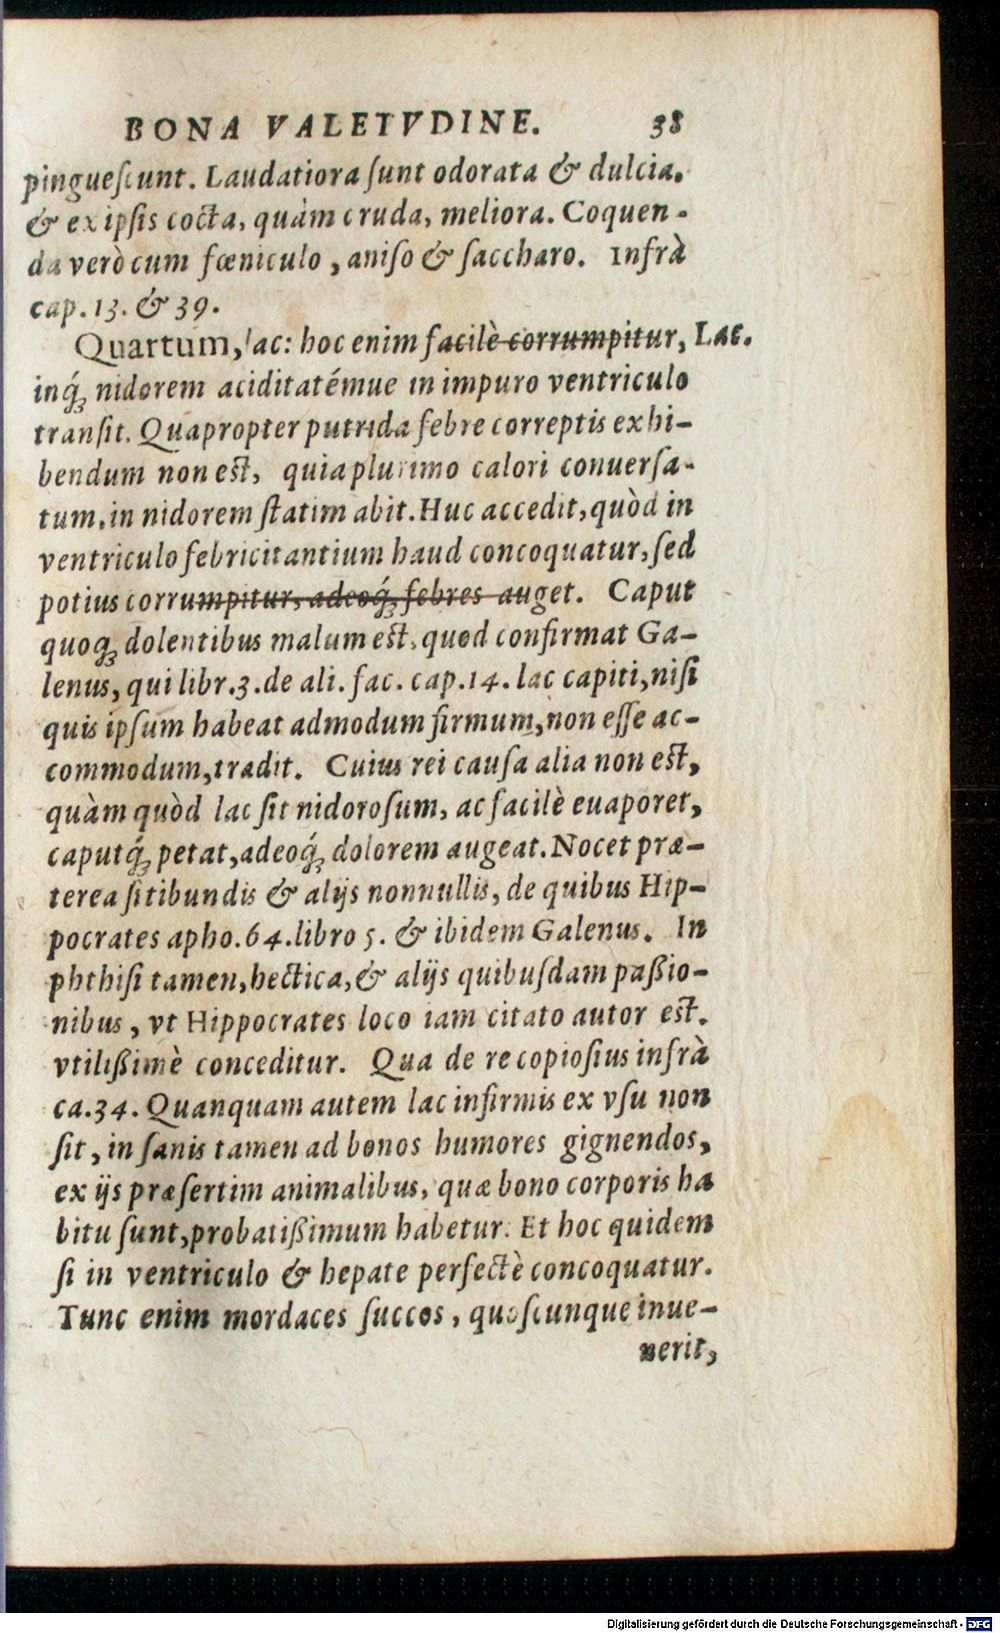 BONA VALETVDINE. 38
pinguescunt. Laudatiora sunt odorata & dulcia.
& ex ipsis cocta, quàm cruda, meliora. Coquen-
da verò cum fœniculo, aniso & saccharo. Infrà
cap. 13. & 39.
Quartum, lac: hoc enim facilè corrumpitur, Lac.
inq́ꝫ nidorem aciditatémue in impuro ventriculo
transit. Quapropter putrida febre correptis exhi-
bendum non est, quia plurimo calori conuersa-
tum, in nidorem statim abit. Huc accedit, quòd in
ventriculo febricitantium haud concoquatur, sed
potius corrumpitur, adeoq́ꝫ febres auget. Caput
quoqꝫ dolentibus malum est, quod confirmat Ga-
lenus, qui libr. 3. de ali. fac. cap. 14. lac capiti, nisi
quis ipsum habeat admodum firmum, non esse ac-
commodum, tradit. Cuius rei causa alia non est,
quàm quòd lac sit nidorosum, ac facilè euaporet,
caputq́ꝫ petat, adeoq́ꝫ dolorem augeat. Nocet præ-
terea sitibundis & alijs nonnullis, de quibus Hip-
pocrates apho. 64. libro 5. & ibidem Galenus. In
phthisi tamen, hectica, & alijs quibusdam paßio-
nibus, vt Hippocrates loco iam citato autor est.
vtilißimè conceditur. Qua de re copiosius infrà
ca. 34. Quanquam autem lac infirmis ex vsu non
sit, in sanis tamen ad bonos humores gignendos,
ex ijs præsertim animalibus, quæ bono corporis ha
bitu sunt, probatißimum habetur. Et hoc quidem
si in ventriculo & hepate perfectè concoquatur.
Tunc enim mordaces succos, quoscunque inue-
nerit,
Digitalisierung gefördert durch die Deutsche Forschungsgemeinschaft - DFG